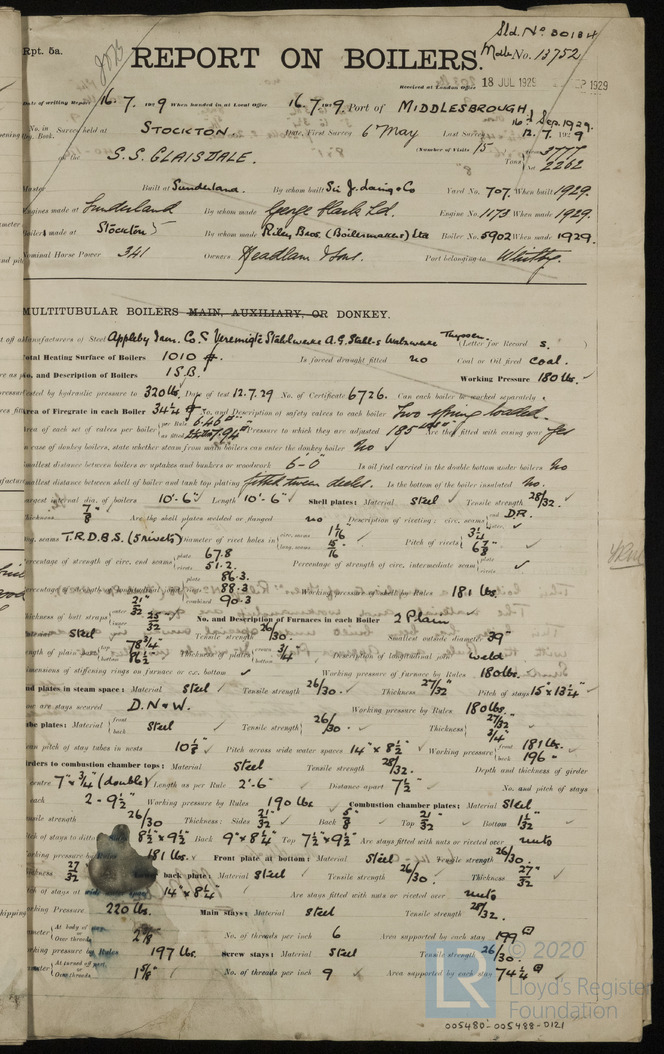 Sld. No 30184
Rpt. 5a.
REPORT ON BOILERS.
Mdb No. 13752
Received at London Office 18 JUL 1929 SEP 1929
Date of writing Report 16.7.1929 When handed in at Local Office 16.7.1929. Port of MIDDLESBROUGH
No. in Reg. Book. Survey held at STOCKTON. Date, First Survey 6th May Last Survey 12.7.1929
16th Sep. 1929.
on the S.S. GLAISDALE. (Number of Visits 15) Tons Gross 3777 Net 2262
Master Built at Sunderland. By whom built Sir J. Laing & Co Yard No. 707. When built 1929.
Engines made at Sunderland By whom made George Clark Ld. Engine No. 1173 When made 1929.
Boilers made at Stockton By whom made Riley Bros. (Boilermakers) Ltd Boiler No. 5902 When made 1929.
Nominal Horse Power 341 Owners Headlam & Sons. Port belonging to Whitby.
MULTITUBULAR BOILERS MAIN, AUXILIARY, OR DONKEY.
Manufacturers of Steel Appleby Iron. Co. & Vereinigte Stahlwerke A.G. Thyssen. (Letter for Record S.)
Total Heating Surface of Boilers 1010 Is forced draught fitted no Coal or Oil fired coal.
No. and Description of Boilers 1 S.B. Working Pressure 180 lbs.
tested by hydraulic pressure to 320 lbs. Date of test 12.7.29 No. of Certificate 6726. Can each boiler be worked separately
Area of Firegrate in each Boiler 34¼ No. and Description of safety valves to each boiler Two spring loaded.
Area of each set of valves per boiler per Rule 6.46 as fitted 7.94 Pressure to which they are adjusted 185 Are they fitted with easing gear Yes
In case of donkey boilers, state whether steam from main boilers can enter the donkey boiler No
Smallest distance between boilers or uptakes and bunkers or woodwork 6'-0" Is oil fuel carried in the double bottom under boilers No
Smallest distance between shell of boiler and tank top plating fitted tween decks. Is the bottom of the boiler insulated no.
Largest internal dia. of boilers 10'-6" Length 10'-6" Shell plates: Material Steel Tensile strength 28/32.
Thickness 7/8 Are the shell plates welded or flanged no Description of riveting: circ. seams end D.R. inter.
long. seams T.R.D.B.S. (5 rivets) Diameter of rivet holes in circ. seams 1 1/16 long. seams 15/16 Pitch of rivets 3¼ 6 7/8
Percentage of strength of circ. end seams plate 67.8 rivets 51.2. Percentage of strength of circ. intermediate seam plate rivets
Percentage of strength of longitudinal joint plate 86.3. rivets 88.3 combined 90.3 Working pressure of shell by Rules 181 lbs.
Thickness of butt straps outer 21/32 inner 25/32 No. and Description of Furnaces in each Boiler 2 Plain
Material Steel Tensile strength 26/30. Smallest outside diameter 39"
Length of plain part top 78¾ bottom 86½ Thickness of plates crown bottom ¾ Description of longitudinal joint weld
Dimensions of stiffening rings on furnace or c.c. bottom Working pressure of furnace by Rules 180 lbs.
End plates in steam space: Material Steel Tensile strength 26/30. Thickness 27/32" Pitch of stays 15" x 13¼"
How are stays secured D.N & W. Working pressure by Rules 180 lbs.
Tube plates: Material front back Steel Tensile strength 26/30 Thickness 27/32" ¾"
Mean pitch of stay tubes in nests 10 1/8 Pitch across wide water spaces 14" x 8½" Working pressure front 181 lbs. back 196
Girders to combustion chamber tops: Material Steel Tensile strength 28/32. Depth and thickness of girder
centre 7" x ¾ (double) Length as per Rule 2'-6" Distance apart 7½" No. and pitch of stays
each 2 - 9½" Working pressure by Rules 190 lbs Combustion chamber plates: Material Steel
Tensile strength 26/30 Thickness: Sides 21/32 Back 5/8 Top 21/32 Bottom
Pitch of stays to ditto: 8½ x 9½ Back 9" x 8¼ Top 7½ x 9½ Are stays fitted with nuts or riveted over nuts
Working pressure by 181 lbs. Front plate at bottom: Material Steel Tensile strength 26/30.
Thickness 27/32 back plate: Material Steel Tensile strength 26/30. Thickness 27/32
Pitch of stays at 14" x 8¼" Are stays fitted with nuts or riveted over nuts
Working Pressure 220 lbs. Main stays: Material Steel Tensile strength 28/32.
Diameter At body of stay or Over threads 2 7/8 No. of threads per inch 6 Area supported by each stay 199
Working pressure by Rules 197 lbs. Screw stays: Material Steel Tensile strength 26/30.
Diameter At turned off part or Over threads 1 5/8 No. of threads per inch 9 Area supported by each stay 74¼
LR
© 2020
Lloyd's Register
Foundation
005480-005488-0121